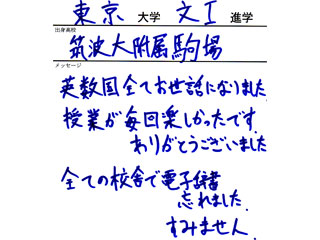 東京 大学 文I 進学
出身高校
筑波大附属駒場
メッセージ
英数国全てお世話になりました
授業が毎回楽しかったです.
ありがとうございました
全ての校舎で電子辞書
忘れました.
すみません.